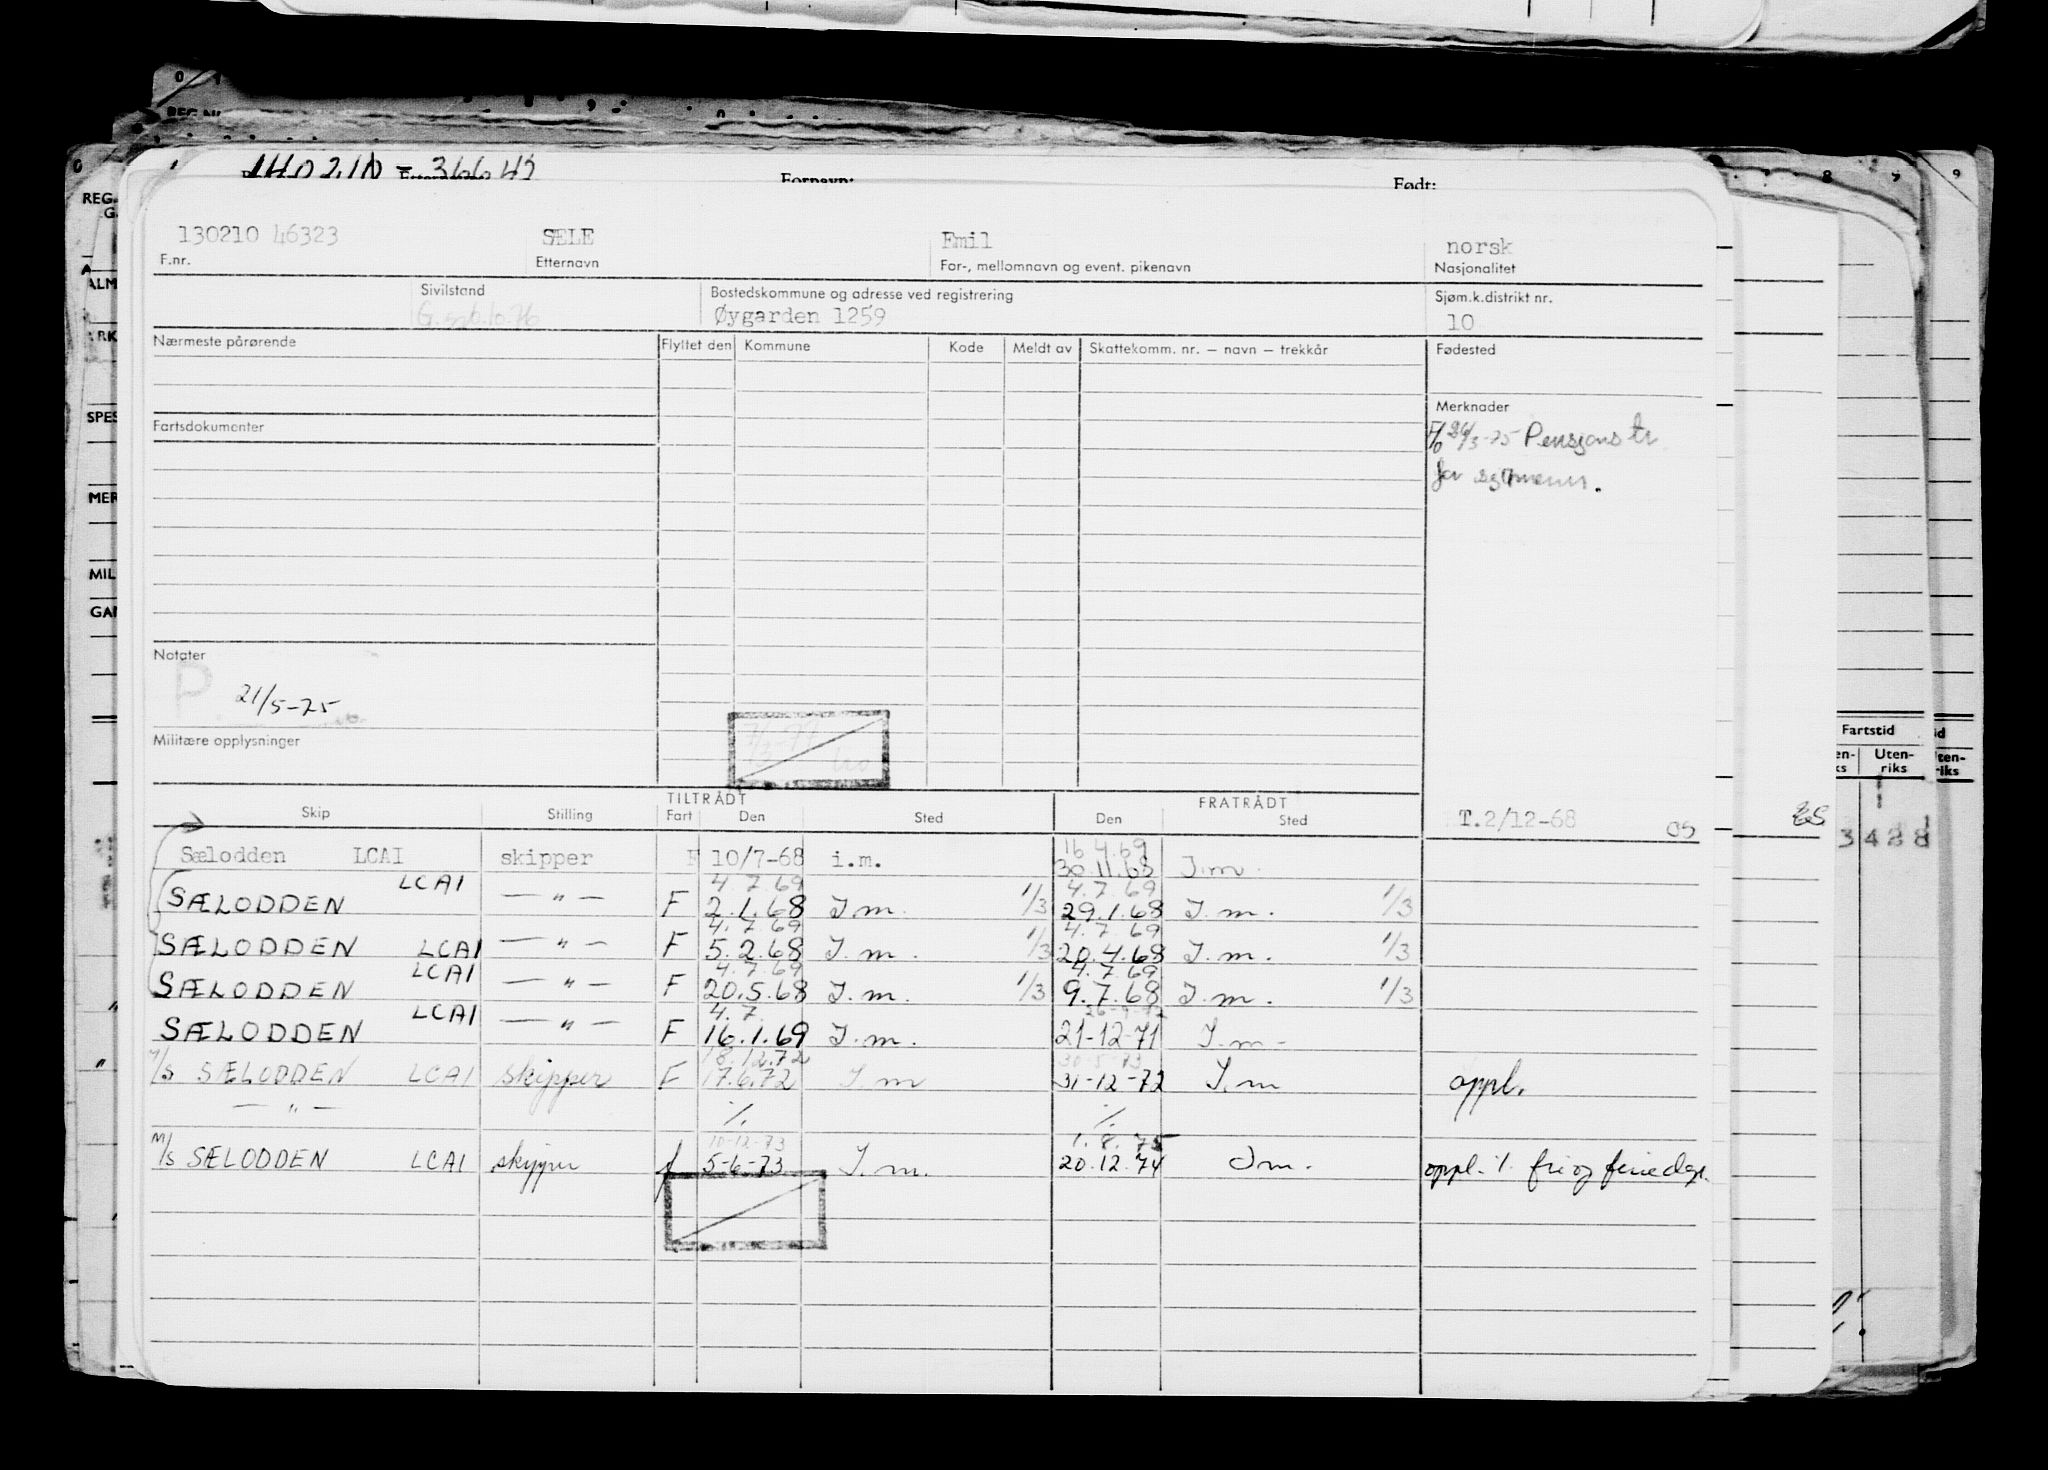 140210 - 36645
Fornavn: Født:
130210 46323 SÆLE Emil norsk
F.nr. Etternavn For-, mellomnavn og event. pikenavn Nasjonalitet
Sivilstand Bostedskommune og adresse ved registrering Sjøm.k.distrikt nr.
Øygarden 1259 10
Nærmeste pårørende Flyttet den Kommune Kode Meldt av Skattekomm. nr. — navn — trekkår Fødested
Merknader
Fartsdokumenter
Pensjons tr.
for sjømenn.
Notater
P 21/5-75
Militære opplysninger
TILTRÅDT FRATRÅDT
Skip Stilling Fart Den Sted Den Sted
T.2/12-68 OS
16 4.69
Sælodden LCAI skipper F 10/7-68 i.m. 30.11.68 I.m.
LCAI 4.7.69 4.7.69
SÆLODDEN — " — F 2.1.68 I.m. 1/3 29.1.68 I.m. 1/3
4.7.69 4.7.69
SÆLODDEN LCAI — " — F 5.2.68 I.m. 1/3 20.4.68 I.m. 1/3
LCAI 4.7.69 4.7.69
SÆLODDEN — " — F 20.5.68 I.m. 1/3 9.7.68 I.m. 1/3
LCAI 4.7.
SÆLODDEN — " — F 16.1.69 I.m. 21-12-71 I.m-
18.12.72 30-5-73
M/S SÆLODDEN LCAI skipper F 17.6.72 I.m 31-12-72 I.m oppl.
— " — ./. ./.
10-12-73 1.8.75
M/S SÆLODDEN LCAI skipper f 5-6-73 I.m. 20.12.74 Im. oppl. ./. fri og feriedgr.
REG.
ALM
SPES
MER
MIL
GAN
Fartstid
Uten-
riks
3 428